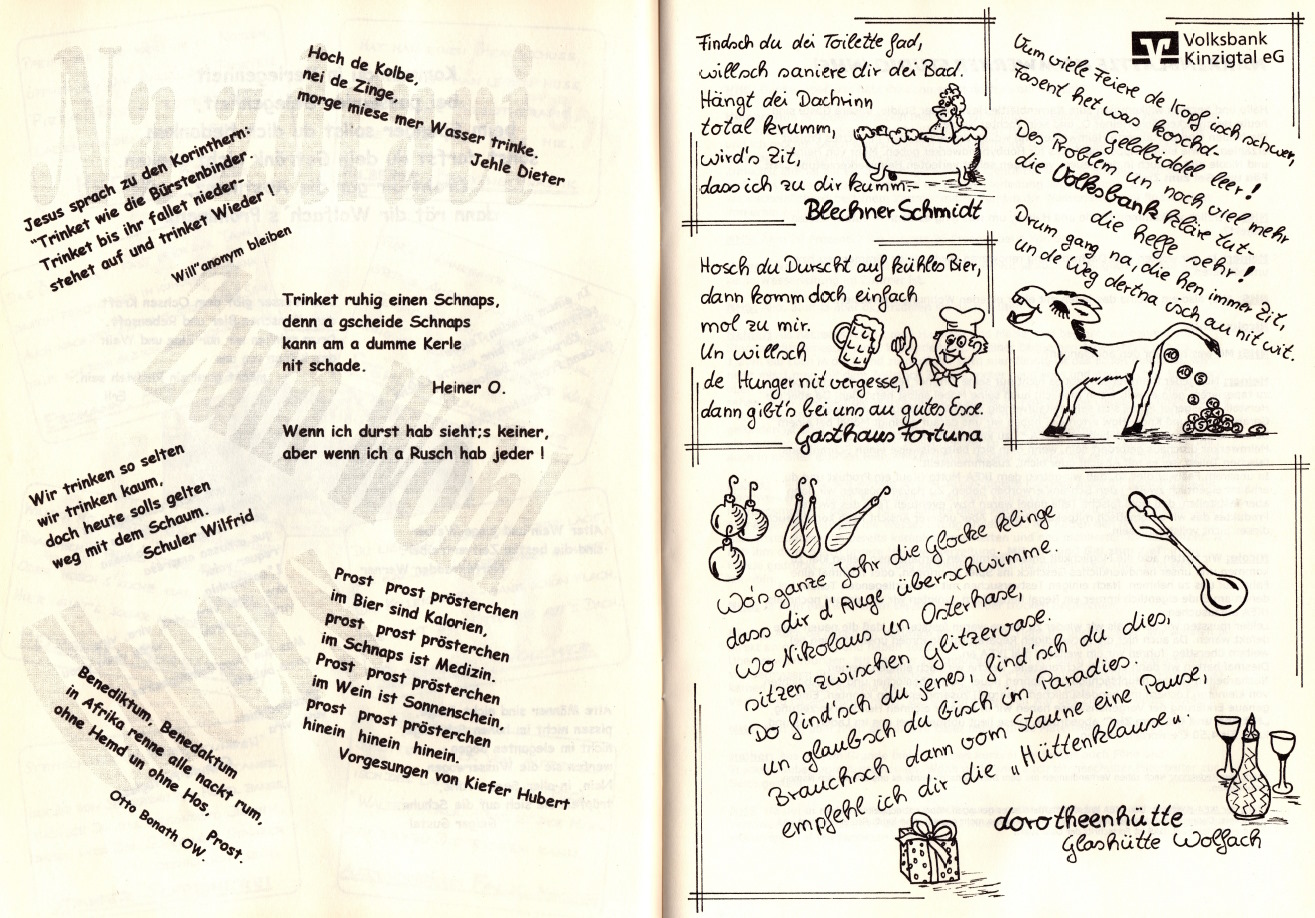 Na zdrowi
Zum Wohl
Cheers
Hoch de Kolbe,
nei de Zinge,
morge miese mer Wasser trinke.
Jehle Dieter
Jesus sprach zu den Korinthern:
"Trinket wie die Bürstenbinder.
Trinket bis ihr fallet nieder-
stehet auf und trinket Wieder !
Will"anonym bleiben
Trinket ruhig einen Schnaps,
denn a gscheide Schnaps
kann am a dumme Kerle
nit schade.
Heiner O.
Wenn ich durst hab sieht;s keiner,
aber wenn ich a Rusch hab jeder !
Wir trinken so selten
wir trinken kaum,
doch heute solls gelten
weg mit dem Schaum.
Schuler Wilfrid
Prost prost prösterchen
im Bier sind Kalorien,
prost prost prösterchen
im Schnaps ist Medizin.
Prost prost prösterchen
im Wein ist Sonnenschein,
prost prost prösterchen
hinein hinein hinein.
Vorgesungen von Kiefer Hubert
Benediktum, Benedaktum
in Afrika renne alle nackt rum,
ohne Hemd un ohne Hos,
Prost.
Otto Bonath OW.
Findsch du dei Toilette fad,
willsch saniere dir dei Bad.
Hängt dei Dachrinn
total krumm,
wird's Zit,
dass ich zu dir kumm.-
Blechner Schmidt
Volksbank
Kinzigtal eG
Vum viele Feiere de Kopf isch schwer,
Fasent het was koschd-
Geldbiddel leer!
Des Problem un noch viel mehr
die Volksbank kläre tut-
die helfe sehr!
Drum gang na, die hen immer Zit,
un de Weg dertna isch au nit wit.
10
10
5
2
Hosch du Durscht auf kühles Bier,
dann komm doch einfach
mol zu mir.
Un willsch
de Hunger nit vergesse,
dann gibt's bei uns au gutes Esse.
Gasthaus Fortuna
Wo's ganze Johr die Glocke klinge
dass dir d'Auge überschwimme.
Wo Nikolaus un Osterhase,
sitzen zwischen Glitzervase.
Do find'sch du jenes, find'sch du dies,
un glaubsch du bisch im Paradies.
Brauchsch dann vom Staune eine Pause,
empfehl ich dir die „Hüttenklause".
dorotheenhütte
Glashütte Wolfach